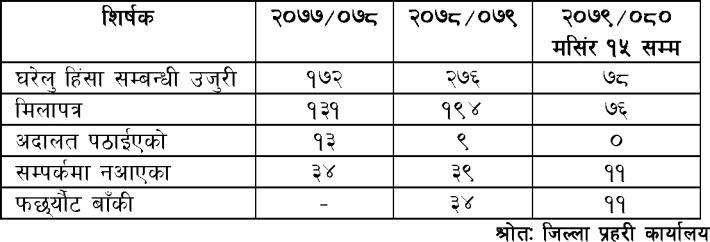 शिर्षक २०७७/०७८ २०७८/०७९ २०७९/०८० मसिंर १५ सम्म
घरेलु हिंसा सम्बन्धी उजुरी १७२ २७६ ७८
मिलापत्र १३१ १९४ ७६
अदालत पठाईएको १३ ९ ०
सम्पर्कमा नआएका ३४ ३९ ११
फछ्र्यौट बाँकी - ३४ ११
श्रोतः जिल्ला प्रहरी कार्यालय